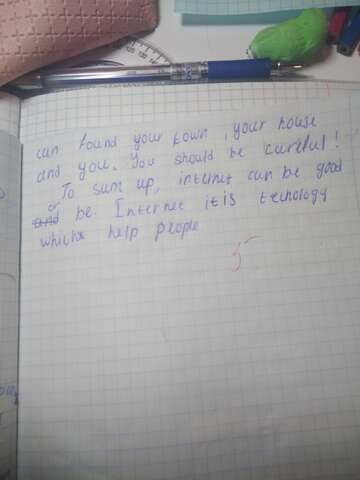 can found your town, your house
and you. You should be careful!
To sum up, internet can be good
or
and be. Internet it is tecnology
whichs help people
5